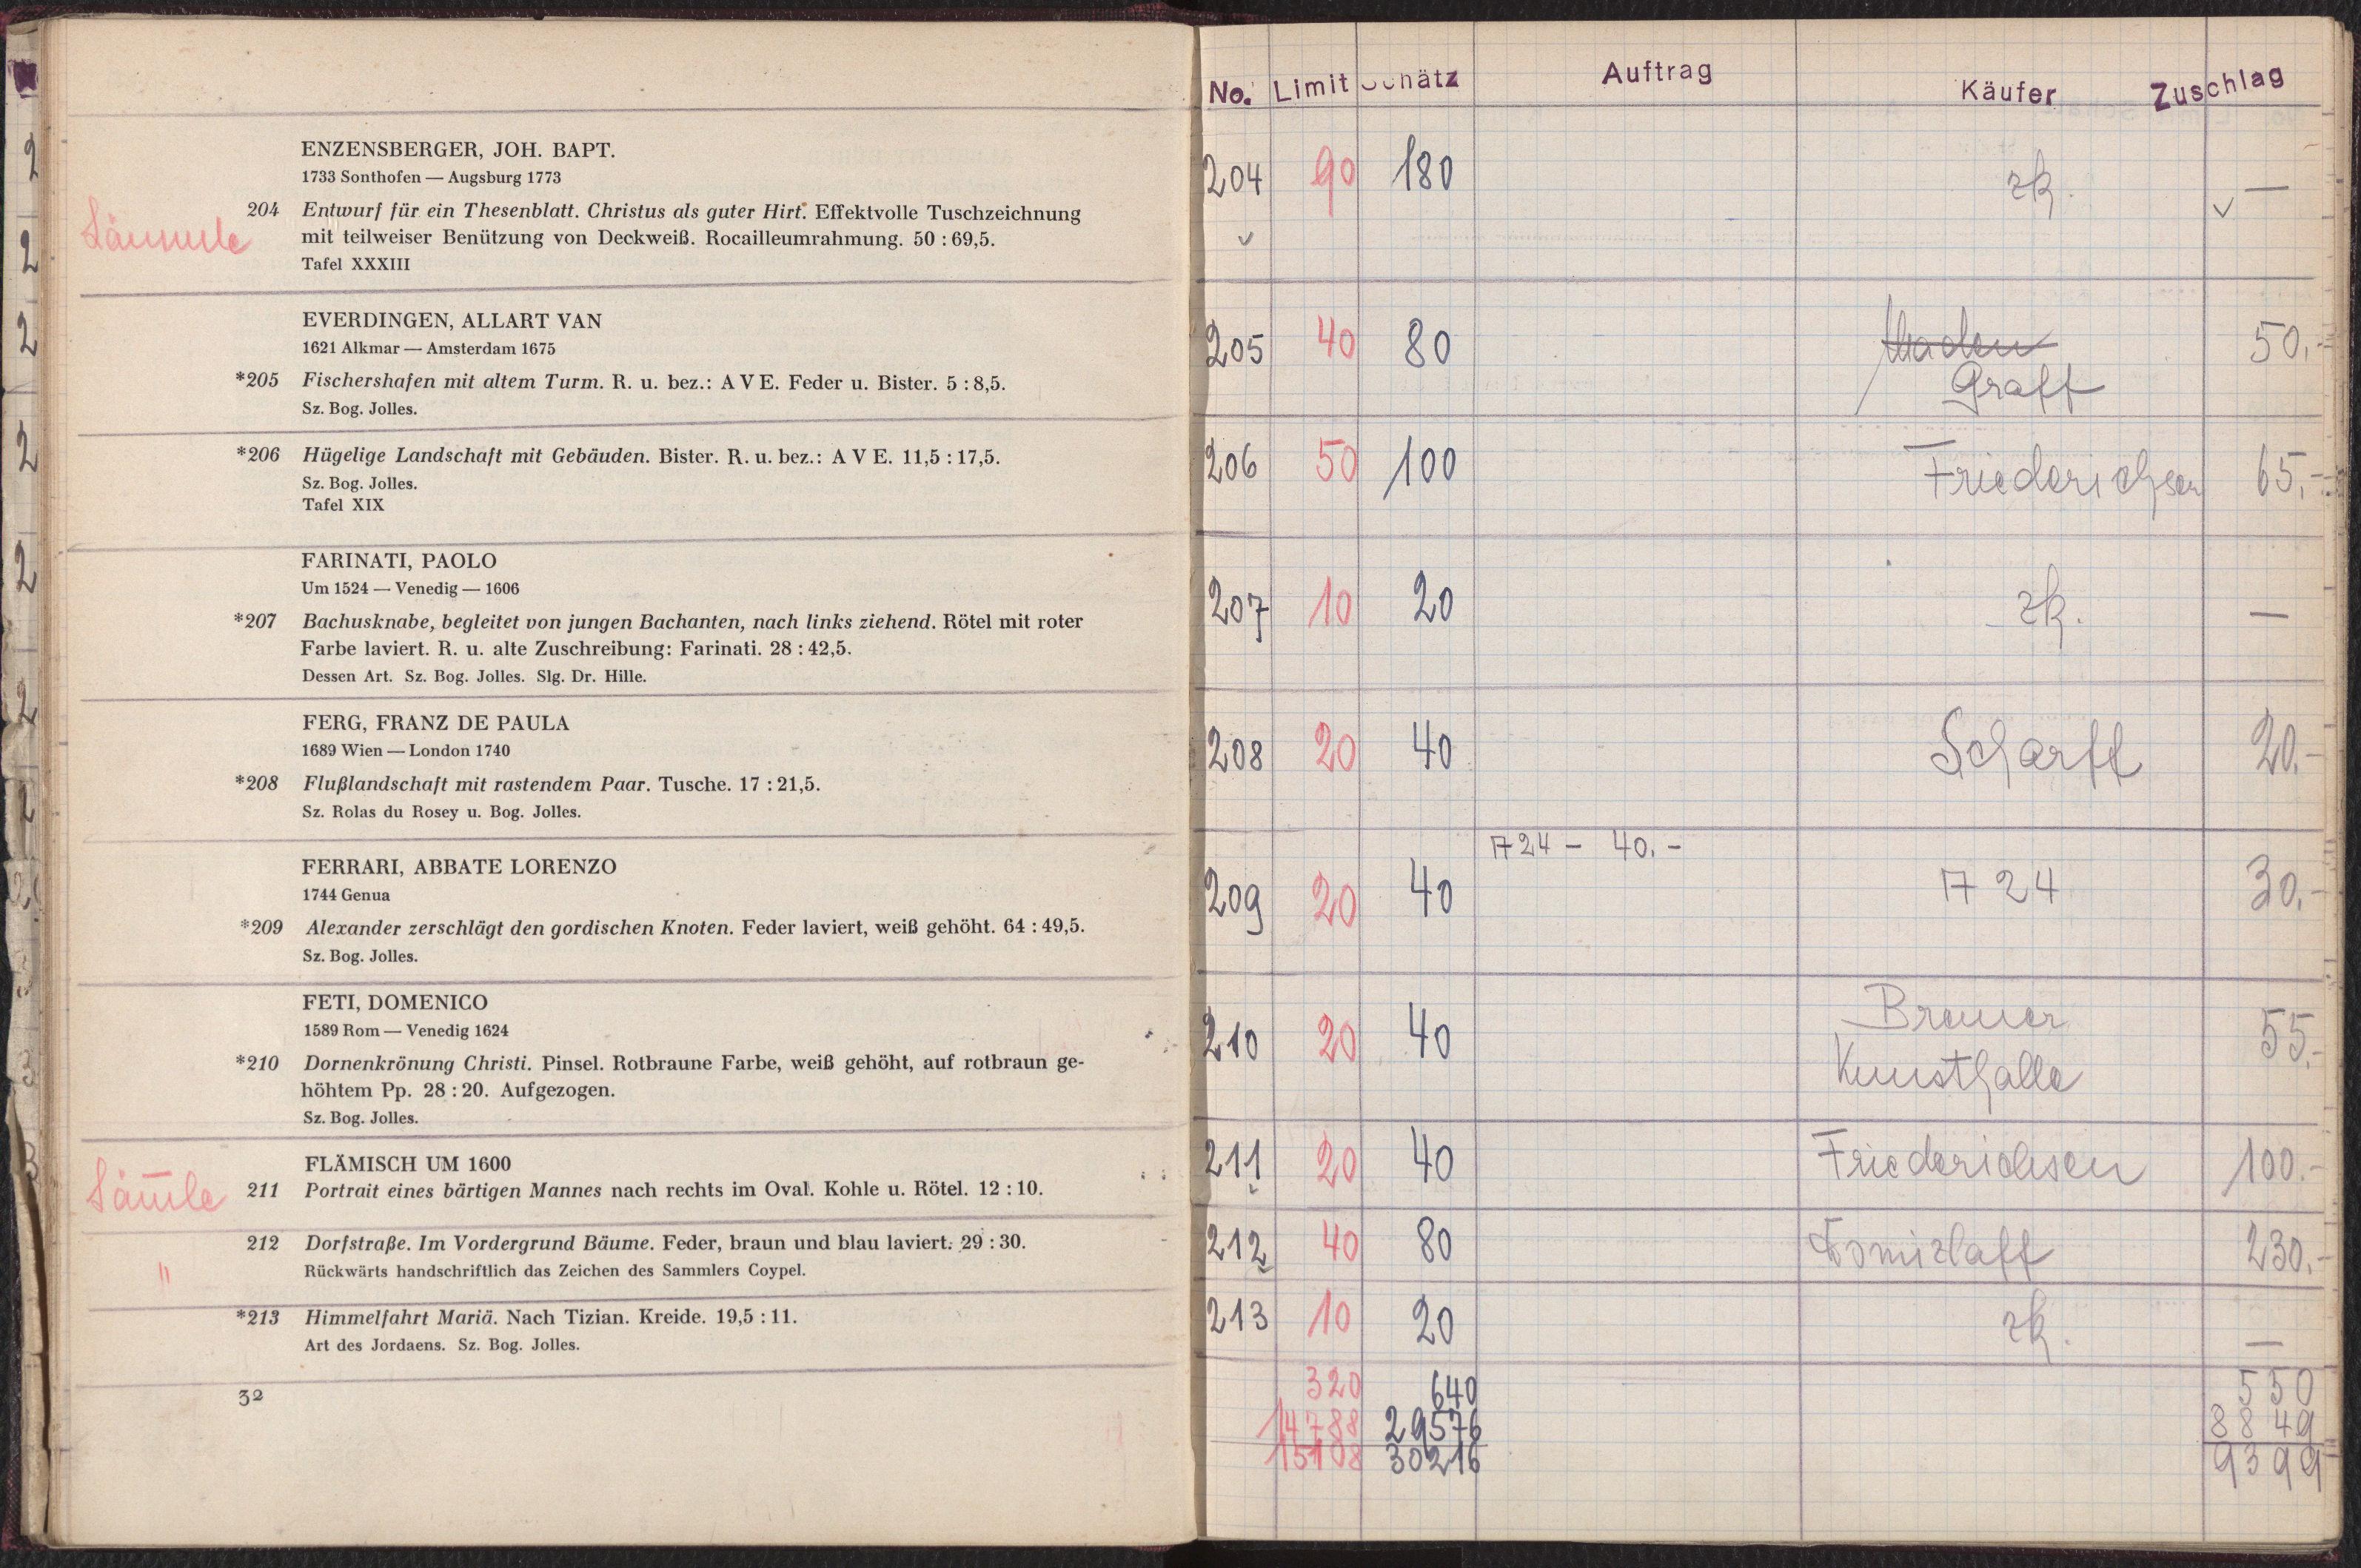 ENZENSBERGER, JOH. BAPT.
1733 Sonthofen — Augsburg 1773
204 Entwurf für ein Thesenblatt. Christus als guter Hirt. Effektvolle Tuschzeichnung
mit teilweiser Benützung von Deckweiß. Rocailleumrahmung. 50 : 69,5.
Tafel XXXIII
EVERDINGEN, ALLART VAN
1621 Alkmar — Amsterdam 1675
*205 Fischershafen mit altem Turm. R. u. bez.: A V E. Feder u. Bister. 5 : 8,5.
Sz. Bog. Jolles.
*206 Hügelige Landschaft mit Gebäuden. Bister. R. u. bez.: A V E. 11,5 : 17,5.
Sz. Bog. Jolles.
Tafel XIX
FARINATI, PAOLO
Um 1524 — Venedig — 1606
*207 Bachusknabe, begleitet von jungen Bachanten, nach links ziehend. Rötel mit roter
Farbe laviert. R. u. alte Zuschreibung: Farinati. 28 : 42,5.
Dessen Art. Sz. Bog. Jolles. Slg. Dr. Hille.
FERG, FRANZ DE PAULA
1689 Wien — London 1740
*208 Flußlandschaft mit rastendem Paar. Tusche. 17 : 21,5.
Sz. Rolas du Rosey u. Bog. Jolles.
FERRARI, ABBATE LORENZO
1744 Genua
*209 Alexander zerschlägt den gordischen Knoten. Feder laviert, weiß gehöht. 64 : 49,5.
Sz. Bog. Jolles.
FETI, DOMENICO
1589 Rom — Venedig 1624
*210 Dornenkrönung Christi. Pinsel. Rotbraune Farbe, weiß gehöht, auf rotbraun ge-
höhtem Pp. 28 : 20. Aufgezogen.
Sz. Bog. Jolles.
FLÄMISCH UM 1600
211 Portrait eines bärtigen Mannes nach rechts im Oval. Kohle u. Rötel. 12 : 10.
212 Dorfstraße. Im Vordergrund Bäume. Feder, braun und blau laviert. 29 : 30.
" Rückwärts handschriftlich das Zeichen des Sammlers Coypel.
*213 Himmelfahrt Mariä. Nach Tizian. Kreide. 19,5 : 11.
Art des Jordaens. Sz. Bog. Jolles.
32
No. Limit Schätz Auftrag Käufer Zuschlag
204 90 180 zk. —
205 40 80 50,-
Graff
206 50 100 Friederichsen 65,-
207 10 20 zk. —
208 20 40 Scharff 20.-
A 24 - 40.-
209 20 40 A 24 30,-
210 20 40 Bremer 55,-
Kunsthalle
211 20 40 Friederichsen 100.-
212 40 80 Domizlaff 230,-
213 10 20 zk. —
320 640 550
14788 29576 8849
15108 30216 9399